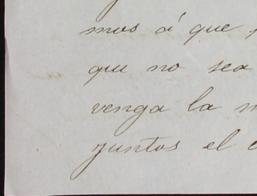 mos á que
que no sea
venga la
juntos el